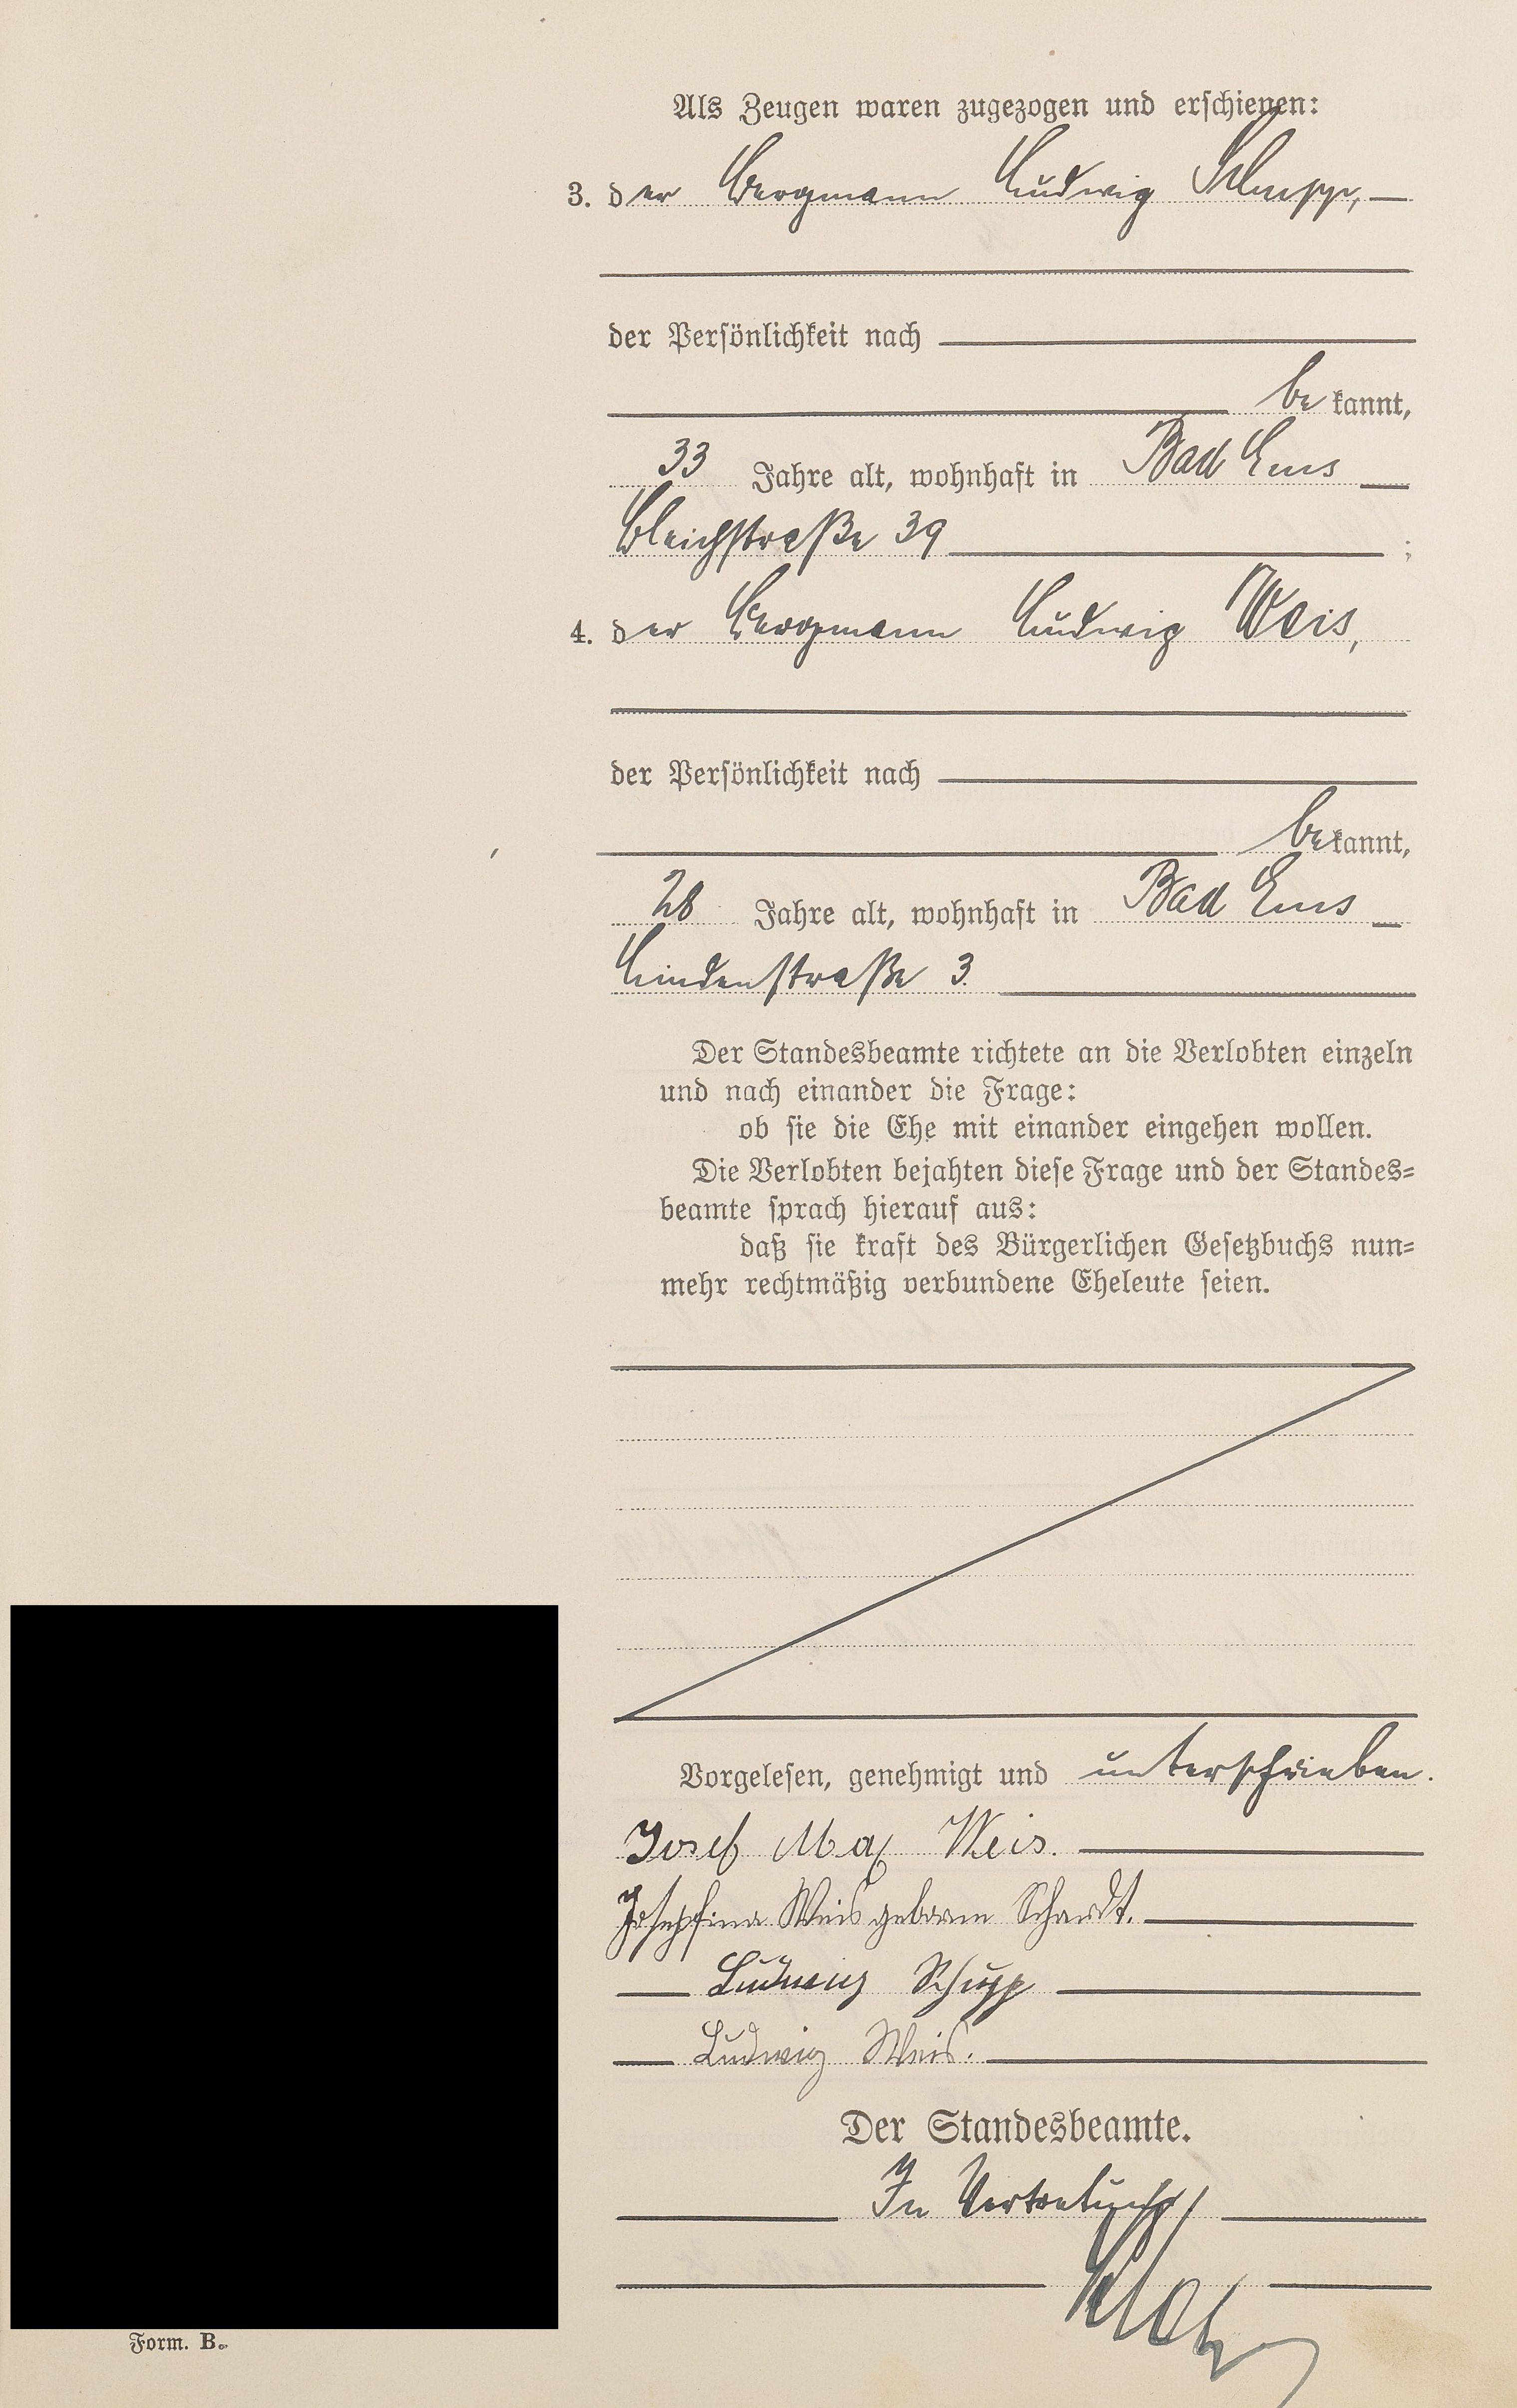 Als Zeugen waren zugezogen und erschienen:
3. der Bergmann Ludwig Schupp,
der Persönlichkeit nach
bekannt,
33 Jahre alt, wohnhaft in Bad Ems
Bleichstraße 39 ;
4. der Bergmann Ludwig Weis,
der Persönlichkeit nach
bekannt,
28 Jahre alt, wohnhaft in Bad Ems
Lindenstraße 3.
Der Standesbeamte richtete an die Verlobten einzeln
und nach einander die Frage:
ob sie die Ehe mit einander eingehen wollen.
Die Verlobten bejahten diese Frage und der Standes-
beamte sprach hierauf aus:
daß sie kraft des Bürgerlichen Gesetzbuchs nun-
mehr rechtmäßig verbundene Eheleute seien.
Vorgelesen, genehmigt und unterschrieben.
Josef Max Weis.
Josephina Weis geborene Schardt.
Ludwig Schupp
Ludwig Weis.
Der Standesbeamte.
In Vertretung
Form. B.